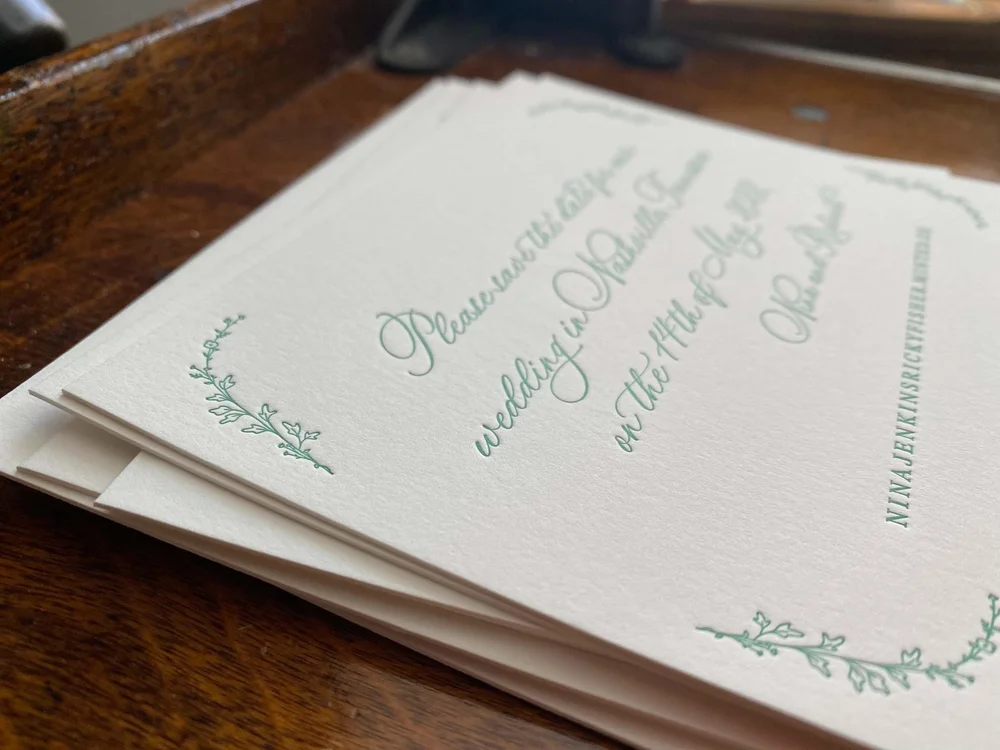 Please save the date for our
wedding in Nashville Tennessee
on the 14th of May
Nina and
NINAJENKINSRICKYFISHER.MINTED.US